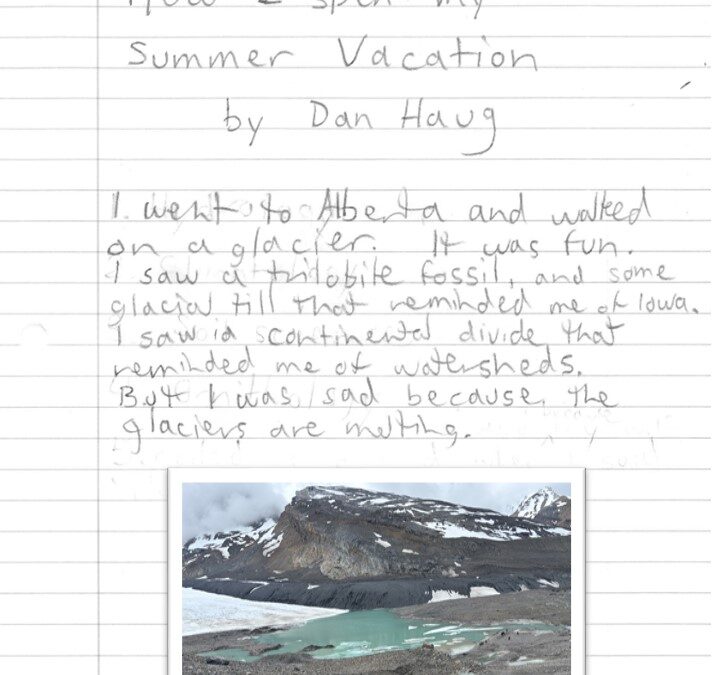 How I spent my
Summer Vacation
by Dan Haug
I went to Alberta and walked
on a glacier. It was fun.
I saw a trilobite fossil, and some
glacial till that reminded me of Iowa.
I saw a continental divide that
reminded me of watersheds.
But I was sad because the
glaciers are melting.